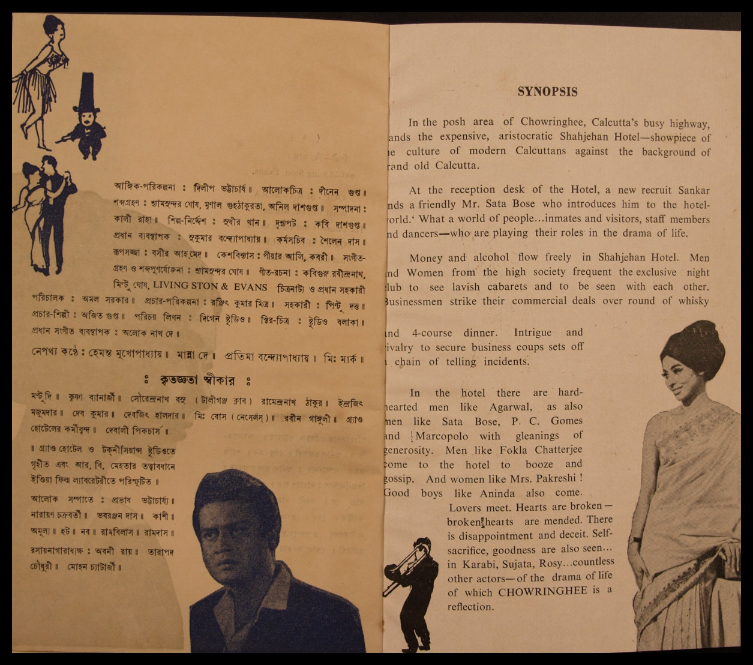 আঙ্গিক-পরিকল্পনা : দিলীপ ভট্টাচার্য॥ আলোকচিত্র : দীনেন গুপ্ত॥
শব্দগ্রহণ : শ্যামসুন্দর ঘোষ, মৃণাল গুহঠাকুরতা, অনিল দাশগুপ্ত॥ সম্পাদনা :
কালী রাহা॥ শিল্প-নির্দেশ : সুধীর খান॥ দৃশ্যপট : কবি দাশগুপ্ত॥
প্রধান ব্যবস্থাপক : সুকুমার বন্দ্যোপাধ্যায়॥ কর্মসচিব : শৈলেন দাস॥
রূপসজ্জা : বসীর আহমেদ॥ কেশবিন্যাস : পীয়ার আলি, কবরী॥ সংগীত-
গ্রহণ ও শব্দপুণর্যোজনা : শ্যামসুন্দর ঘোষ॥ গীত-রচনা : কবিগুরু রবীন্দ্রনাথ,
মিণ্টু ঘোষ, LIVING STON & EVANS চিত্রনাট্য ও প্রধান সহকারী
পরিচালক : অমল সরকার॥ প্রচার-পরিকল্পনা : রঞ্জিৎ কুমার মিত্র॥ সহকারী : পিণ্টু দত্ত॥
প্রচার-শিল্পী : অজিত গুপ্ত॥ পরিচয় লিখন : দিগেন ষ্টুডিও॥ স্থির-চিত্র : ষ্টুডিও বলাকা॥
প্রধান সংগীত ব্যবস্থাপক : অলোক নাথ দে॥
নেপথ্য কণ্ঠে : হেমন্ত মুখোপাধ্যায়॥ মান্না দে॥ প্রতিমা বন্দ্যোপাধ্যায়॥ মিঃ মার্ক॥
: কৃতজ্ঞতা স্বীকার :
মণ্টু দি॥ কৃষ্ণা ব্যানার্জী॥ সৌরেন্দ্রনাথ বসু (টালীগঞ্জ ক্লাব) রামেন্দ্রনাথ ঠাকুর॥ ইন্দ্রজিৎ
মজুমদার॥ দেব কুমার॥ দেবজিৎ হালদার॥ মিঃ বোস (নেসেলস্)॥ রবীন গাঙ্গুলী॥ গ্র্যাণ্ড
হোটেলের কর্মীবৃন্দ॥ দেবালী পিকচার্স॥
॥ গ্র্যাণ্ড হোটেল ও টেকনীসিয়ান্স ষ্টুডিওতে
গৃহীত এবং আর, বি, মেহতার তত্ত্বাবধানে
ইণ্ডিয়া ফিল্ম ল্যাবরেটরীতে পরিস্ফুটিত॥
আলোক সম্পাতে : প্রভাষ ভট্টাচার্য্য॥
নারায়ণ চক্রবর্তী॥ ভবরঞ্জন দাস॥ কাশী॥
অমূল্য॥ হট॥ নব॥ রামবিলাস॥ রামদাস॥
রসায়নাগারাধ্যক্ষ : অবনী রায়॥ তারাপদ
চৌধুরী॥ মোহন চ্যাটার্জী॥
SYNOPSIS
In the posh area of Chowringhee, Calcutta's busy highway,
ands the expensive, aristocratic Shahjehan Hotel—showpiece of
e culture of modern Calcuttans against the background of
rand old Calcutta.
At the reception desk of the Hotel, a new recruit Sankar
nds a friendly Mr. Sata Bose who introduces him to the hotel-
vorld.' What a world of people...inmates and visitors, staff members
nd dancers—who are playing their roles in the drama of life.
Money and alcohol flow freely in Shahjehan Hotel. Men
nd Women from the high society frequent the exclusive night
lub to see lavish cabarets and to be seen with each other.
Businessmen strike their commercial deals over round of whisky
and 4-course dinner. Intrigue and
rivalry to secure business coups sets off
a chain of telling incidents.
In the hotel there are hard-
hearted men like Agarwal, as also
men like Sata Bose, P. C. Gomes
and Marcopolo with gleanings of
generosity. Men like Fokla Chatterjee
come to the hotel to booze and
gossip. And women like Mrs. Pakreshi !
Good boys like Aninda also come.
Lovers meet. Hearts are broken—
broken hearts are mended. There
is disappointment and deceit. Self-
sacrifice, goodness are also seen...
in Karabi, Sujata, Rosy...countless
other actors—of the drama of life
of which CHOWRINGHEE is a
reflection.